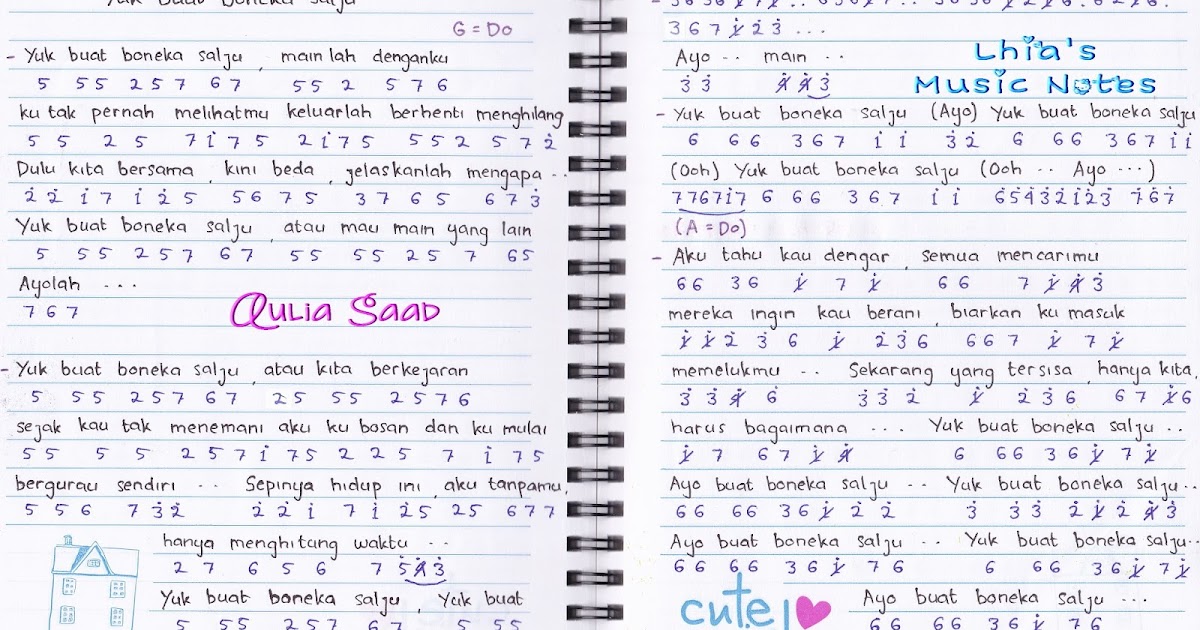 Yuk buat boneka salju
G = Do
- Yuk buat boneka salju , main lah denganku
5 5 5 2 5 7 6 7 5 5 2 5 7 6
ku tak pernah melihatmu keluarlah berhenti menghilang
5 5 2 5 7 i 7 5 2 i 7 5 5 5 2 5 7 2̇
Dulu kita bersama , kini beda , jelaskanlah mengapa - -
2̇ 2̇ i 7 i 2̇ 5 5 6 7 5 3 7 6 5 6 7 3̇
Yuk buat boneka salju , atau mau main yang lain
5 5 5 2 5 7 6 7 5 5 5 5 2 5 7 6 5
Ayolah - - -
7 6 7
Aulia Saad
- Yuk buat boneka salju , atau kita berkejaran
5 5 5 2 5 7 6 7 2 5 5 5 2 5 7 6
sejak kau tak menemani aku ku bosan dan ku mulai
5 5 5 5 2 5 7 i 7 5 2 2 5 7 i 7 5
bergurau sendiri - - Sepinya hidup ini , aku tanpamu,
5 5 6 7 3̇ 2̇ 2̇ 2̇ i 7 i 2̇ 5 2 5 6 7 7
hanya menghitung waktu - -
2 7 6 5 6 7 5̇ 4̸̇ 3̇
Yuk buat boneka salju , Yuk buat
5 5 5 2 5 7 6 7 5 5 5
3 6 7 1̸̇ 2̇ 3̇ ...
Ayo - - main - -
3̇ 3̇ 4̸̇ 4̸̇ 3̇
Lhia's
Music Notes
- Yuk buat boneka salju (Ayo) Yuk buat boneka salju
6 6 6 3 6 7 i i 3̇ 2̇ 6 6 6 3 6 7 i i
(Ooh) Yuk buat boneka salju (Ooh - - Ayo - - -)
7 7 6 7 i 7 6 6 6 3 6 7 i i 6̇ 5̇ 4̇ 3̇ 2̇ i 2̇ 3̇ 7̇ 6̇ 7̇
(A = Do)
- Aku tahu kau dengar , semua mencarimu
6 6 3 6 1̸̇ 7 1̸̇ 6 6 7 1̸̇ 4̸̇ 3̇
mereka ingin kau berani , biarkan ku masuk
1̸̇ 1̸̇ 2̇ 3̇ 6 1̸̇ 2̇ 3̇ 6 6 6 7 1̸̇ 7 1̸̇
memelukmu - - Sekarang yang tersisa , hanya kita,
3̇ 3̇ 4̸̇ 6 3̇ 3̇ 2̇ 1̸̇ 2̇ 3̇ 6 6 7 1̸̇ 6
harus bagaimana - - - Yuk buat boneka salju - -
1̸̇ 7 6 7 1̸̇ 4̸̇ 6 6 6 3 6 1̸̇ 7 1̸̇
Ayo buat boneka salju - - Yuk buat boneka salju - -
6 6 6 6 3 6 1̸̇ 2̇ 2̇ 3̇ 3̇ 3̇ 2̇ 1̸̇ 2̇ 4̸̇ 3̇
Ayo buat boneka salju - - Yuk buat boneka salju - -
6 6 6 6 3 6 1̸̇ 7 6 6 6 6 3 6 1̸̇ 7 1̸̇
cute!
Ayo buat boneka salju - - -
6 6 6 6 3 6 1̸̇ 7 6